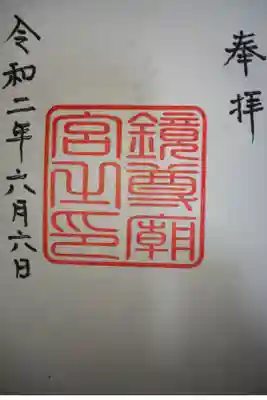 奉拝
鏡尊廟
宮之印
令和二年六月六日